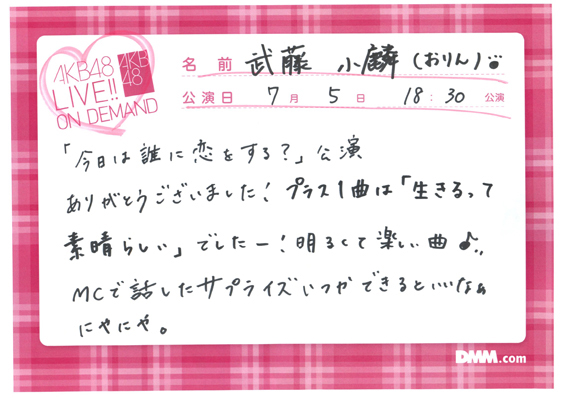 AKB48
LIVE!!
ON DEMAND
AKB
48
名前 武藤 小麟(おりん)♪
公演日 7月 5日 18:30 公演
「今日は誰に恋をする?」公演
ありがとうございました! プラス1曲は「生きるって
素晴らしい」でしたー!明るくて楽しい曲♪
MCで話したサプライズいつかできるといいなぁ
にやにや。
DMM.com